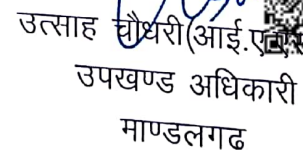 उत्साह चौधरी(आई.ए
उपखण्ड अधिकारी
माण्डलगढ